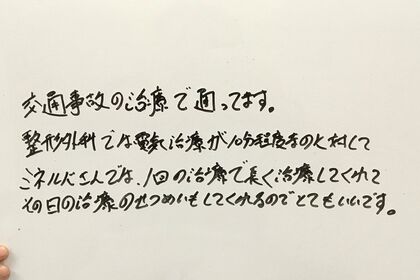 交通事故の治療で通ってます。
整形外科では電気治療が10分程度なのに対して
ミネルバさんでは、1回の治療で長く治療してくれて
その日の治療のせつめいもしてくれるのでとてもいいです。